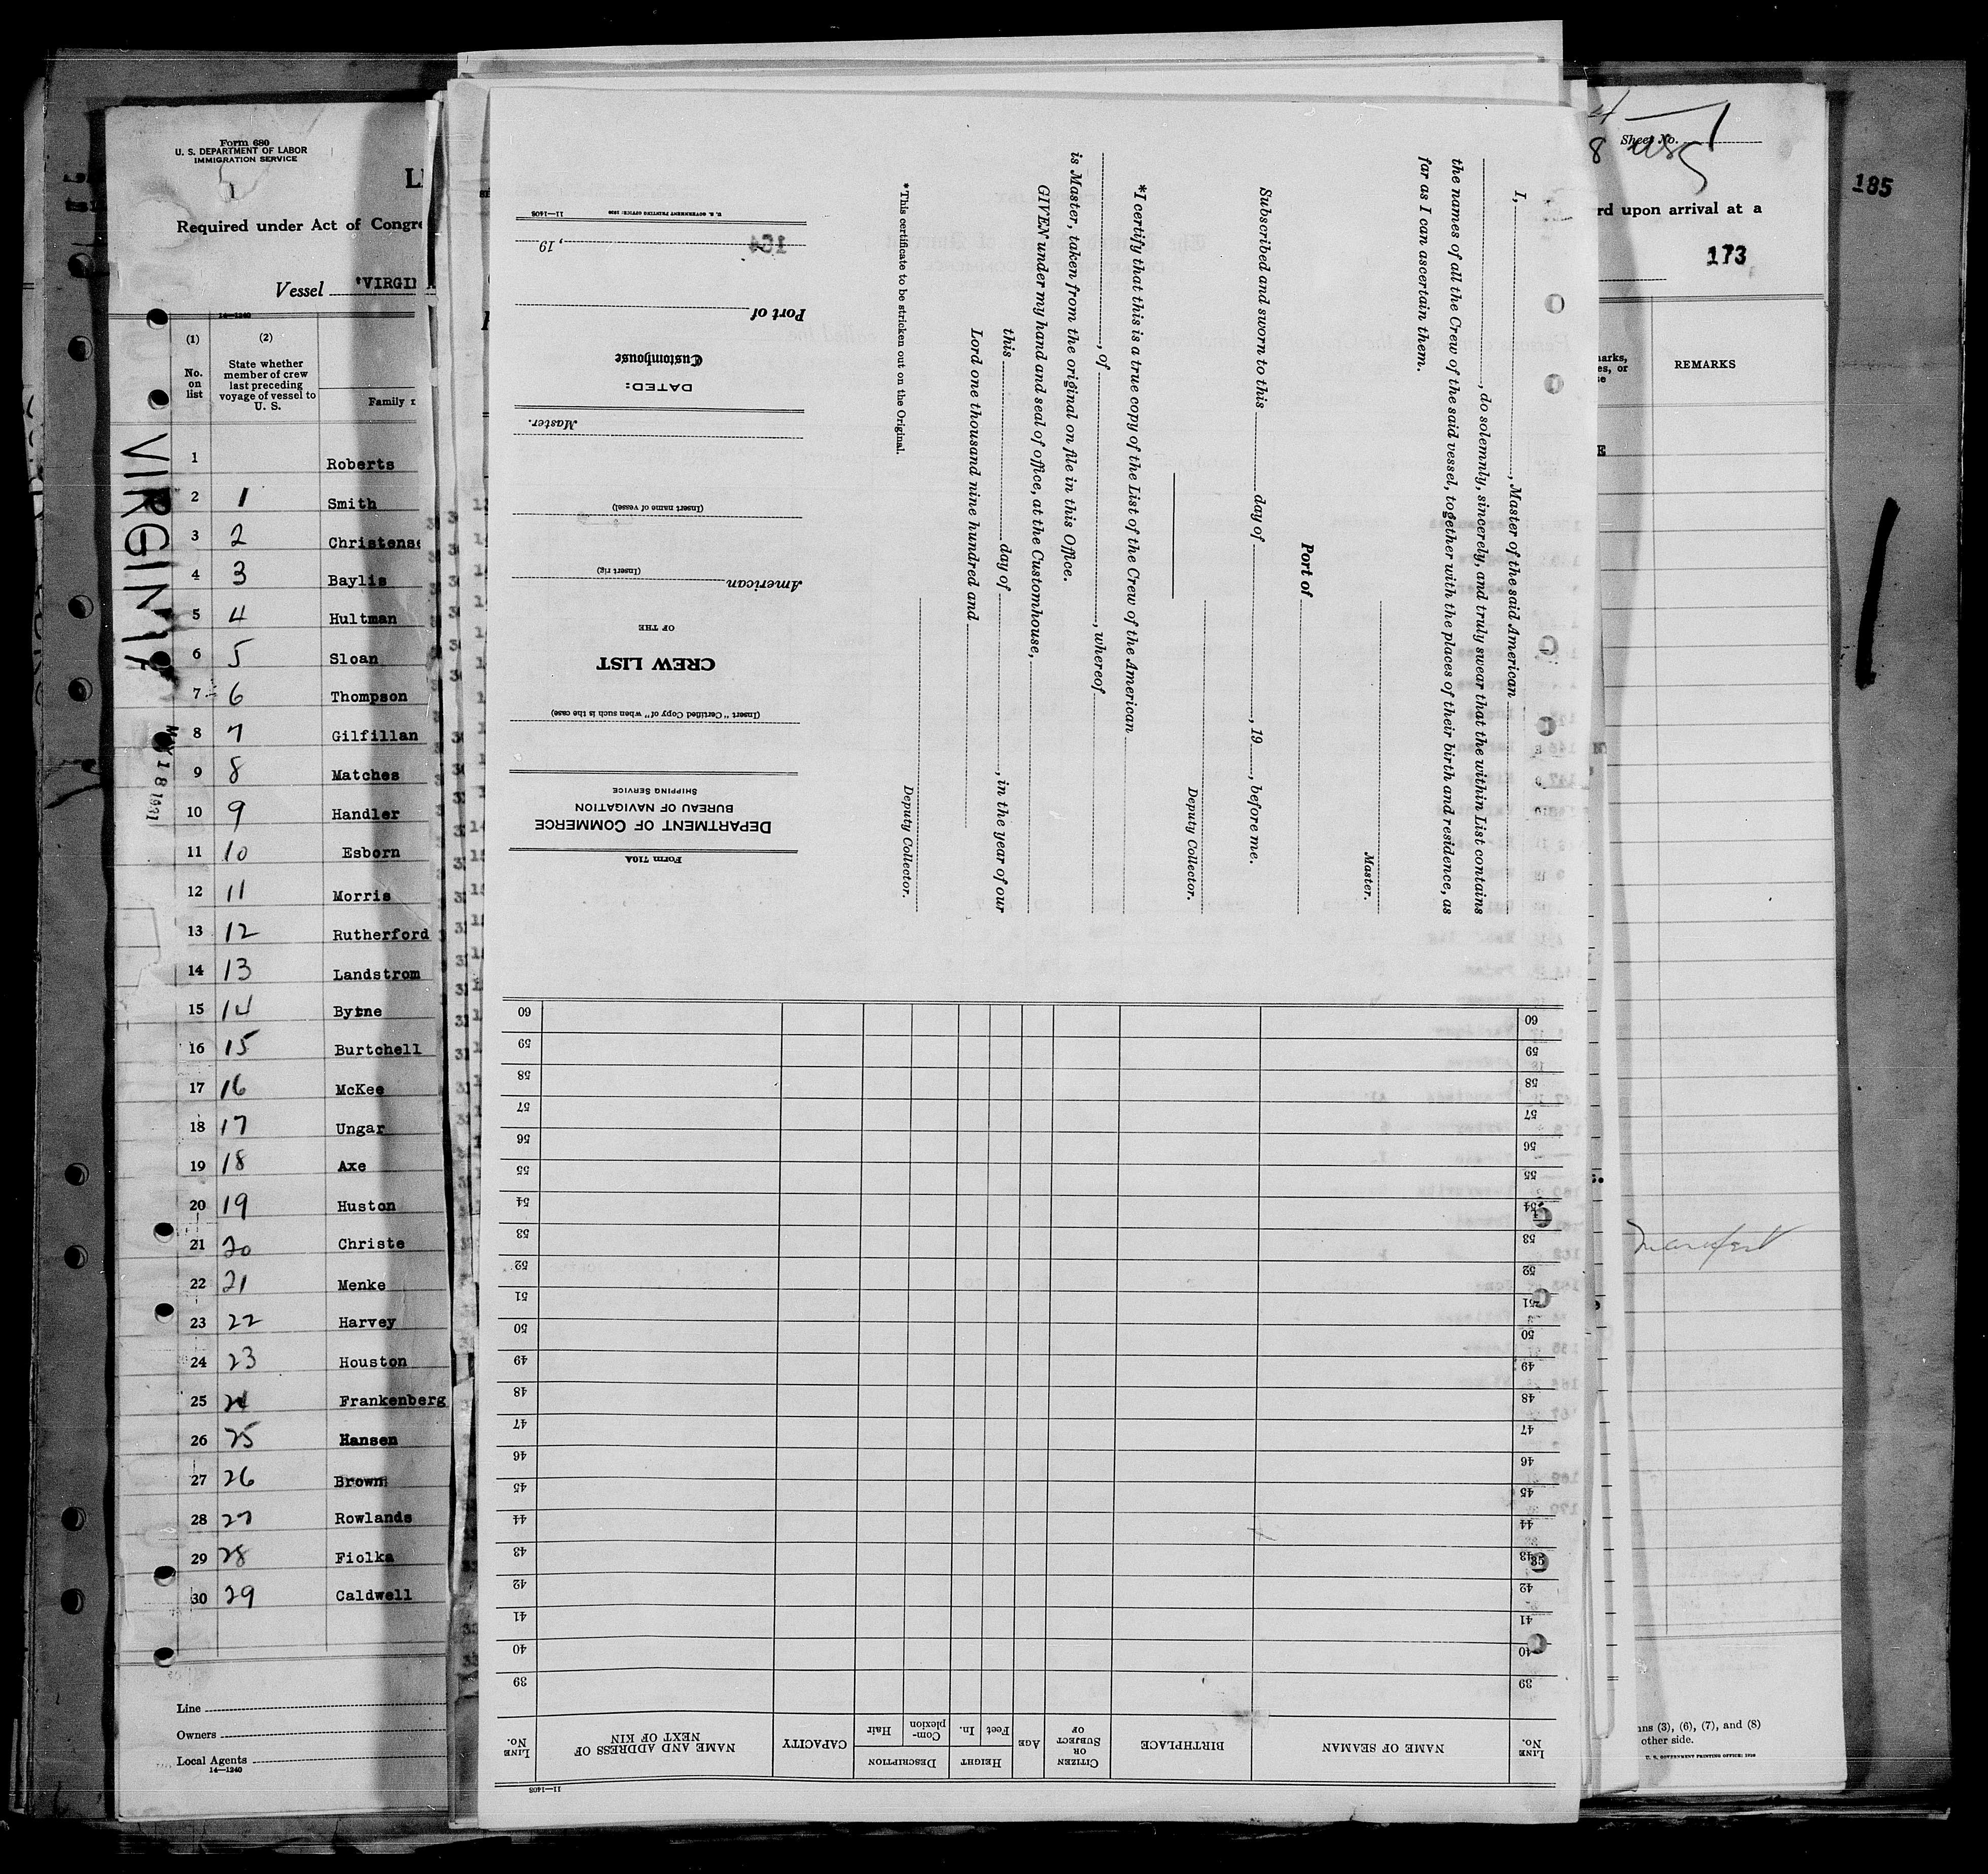 Form 680
U. S. DEPARTMENT OF LABOR
IMMIGRATION SERVICE
Required under Act of Congre
Vessel "VIRGIN
14—1240
(1)
No. on list
(2)
State whether member of crew last preceding voyage of vessel to U. S.
Family
1 Roberts
2 1 Smith
3 2 Christense
4 3 Baylis
5 4 Hultman
6 5 Sloan
7 6 Thompson
8 7 Gilfillan
9 8 Matches
10 9 Handler
11 10 Esborn
12 11 Morris
13 12 Rutherford
14 13 Landstrom
15 14 Byrne
16 15 Burtchell
17 16 McKee
18 17 Ungar
19 18 Axe
20 19 Huston
21 20 Christe
22 21 Menke
23 22 Harvey
24 23 Houston
25 24 Frankenberg
26 25 Hansen
27 26 Brown
28 27 Rowlands
29 28 Fiolka
30 29 Caldwell
Line
Owners
Local Agents
14—1240
VIRGINIA
MAY 18 1931
I, , Master of the said American
, do solemnly, sincerely, and truly swear that the within List contains
the names of all the Crew of the said vessel, together with the places of their birth and residence, as
far as I can ascertain them.
Master.
Port of
Subscribed and sworn to this day of , 19 , before me.
Deputy Collector.
*I certify that this is a true copy of the List of the Crew of the American
, of , whereof
is Master, taken from the original on file in this Office.
GIVEN under my hand and seal of office, at the Customhouse,
this day of , in the year of our
Lord one thousand nine hundred and
Deputy Collector.
*This certificate to be stricken out on the Original.
Form 710A
DEPARTMENT OF COMMERCE
BUREAU OF NAVIGATION
SHIPPING SERVICE
(Insert "Certified Copy of" when such is the case)
CREW LIST
OF THE
American
(Insert rig)
(Insert name of vessel)
Master.
DATED:
Customhouse
Port of
, 19
U. S. GOVERNMENT PRINTING OFFICE: 1930 11—1408
11—1408
LINE No.
NAME OF SEAMAN
BIRTHPLACE
CITIZEN OR SUBJECT OF
AGE
HEIGHT
Feet
In.
DESCRIPTION
Complexion
Hair
CAPACITY
NAME AND ADDRESS OF NEXT OF KIN
LINE No.
39 39
40 40
41 41
42 42
43 43
44 44
45 45
46 46
47 47
48 48
49 49
50 50
51 51
52 52
53 53
54 54
55 55
56 56
57 57
58 58
59 59
60 60
Sheet No. 1
rd upon arrival at a
173
185
REMARKS
manifest
ns (3), (6), (7), and (8)
other side.
U. S. GOVERNMENT PRINTING OFFICE: 1930